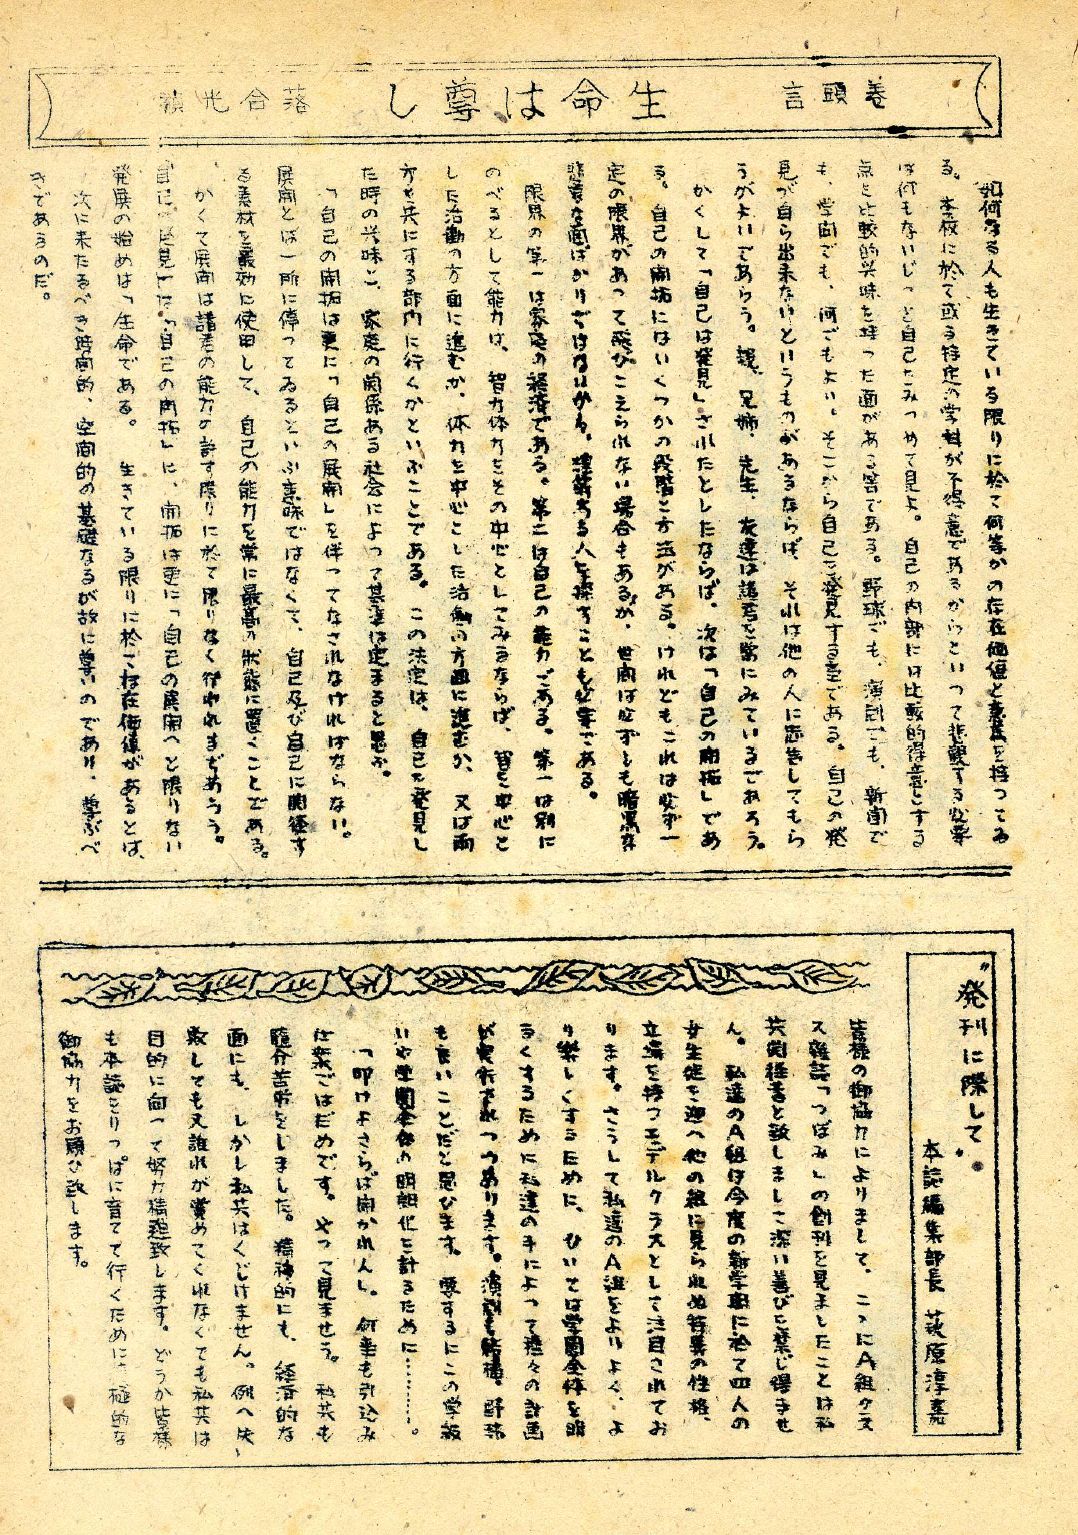 巻頭言
生命は尊し
落合光
如何なる人も生きている限りに於て何等かの存在価値と意義を持つてゐ
る。 本校に於て或る特定の学科が不得意であるからといつて悲観する必要
は何もないじつと自己をみつめて見よ。自己の内部には比較的得意とする
点と比較的興味を持つた面がある筈である。野球でも、演劇でも、新聞で
も、学問でも、何でもよい。そこから自己を発見する豈である。自己の発
見が自ら出来ないというものがあるならば、それは他の人に忠告してもら
うがよいであらう。親、兄姉、先生、友達は諸君を常にみているであろう。
かくして「自己は発見」されたとしたならば、次は「自己の開拓」であ
る。自己の開拓にはいくつかの段階と方法がある。けれどもこれは必ず一
定の限界があつて飛びこえられない場合もあるが、世間は必ずしも暗黒
な面ばかりではないから、理解ある人を探すことも必要である。
限界の第一は家庭の経済である。第二は自己の能力である。第一は別に
のべるとして能力は、智力体力をその中心としてみるならば、智を中心と
した活動の方面に進むか、体力を中心とした活動の方面に進むか、又は両
方を共にする部内に行くかといふことである。この決定は、自己を発見し
た時の興味と、家庭の関係ある社会によつて基準は定まると思ふ。
「自己の開拓は更に「自己の展開」を伴つてなされなければならない。
展開とは一所に停つてゐるといふ意味ではなくて、自己及び自己に関係す
る素材を最効に使用して、自己の能力を常に最高の状態に置くことである。
かくて展開は諸君の能力の許す限りに於て限りなく行われるであろう。
自己の発見」は、「自己の開拓」に、開拓は更に「自己の展開へと限りない
発展の始めは「生命である。 生きている限りに於て存在価値があるとは、
次に来たるべき時間的、空間的の基礎なるが故に尊いのであり、尊ぶべ
きであるのだ。
"発刊に際して"
本誌編集部長 荻原淳嘉
皆様の御協力によりまして、こゝにA組クラ
ス雑誌「つぼみ」の創刊を見ましたことは私
共関係者と致しまして深い喜びを禁じ得ませ
ん。 私達のA組は今度の新学期に於て四人の
女生徒を迎へ他の組に見られぬ特異の性格、
立場を持つモデルクラスとして注目されてお
ります。さうして私達のA組をよりよく、よ
り楽しくするために、ひいては学園全体を明
るくするために私達の手によつて種々の計画
が実行されつつあります。演劇も結構、野球
も良いことだと思ひます。要するにこの学級
いや学園全体の明朗化を計るために………。
「叩けよさらば開かれん」。何事も引込み
仕案ではだめです。やつて見ませう。 私共も
随分苦労をしました。精神的にも、経済的な
面にも、しかし私共はくじけません。例へ失
敗しても又誰れが賞めてくれなくても私共は
目的に向つて努力精進致します。どうか皆様
も本誌をりつぱに育てて行くために積極的な
御協力をお願ひ致します。